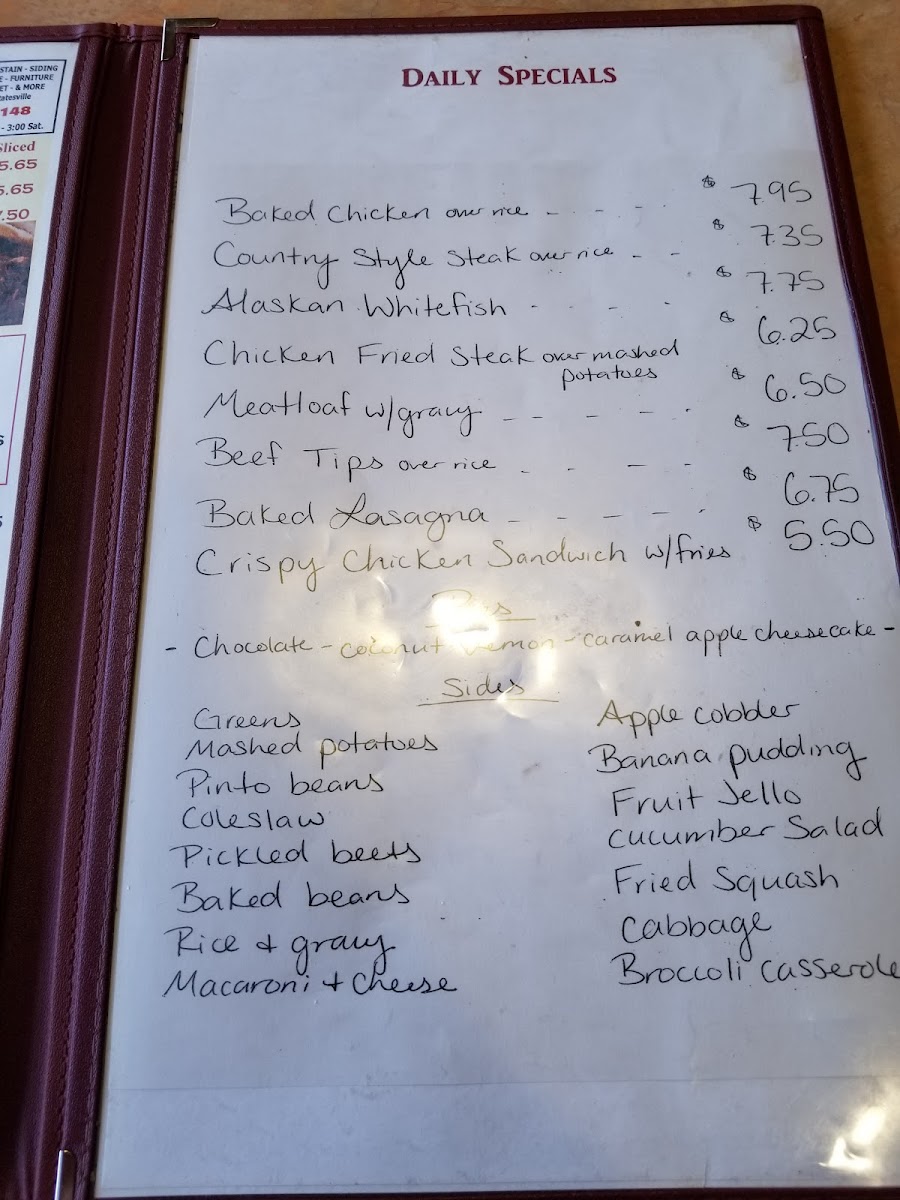 STAIN - SIDING
- FURNITURE
& MORE
148
- 3:00 Sat.
Sliced
5.65
5.65
7.50
DAILY SPECIALS
Baked Chicken over rice - - - - $ 7.95
Country Style Steak over rice - - $ 7.35
Alaskan Whitefish - - - - $ 7.75
Chicken Fried Steak over mashed potatoes $ 6.25
Meatloaf w/gravy - - - - $ 6.50
Beef Tips over rice - - - - $ 7.50
Baked Lasagna - - - - - $ 6.75
Crispy Chicken Sandwich w/fries $ 5.50
Pies
- Chocolate - coconut - Lemon - caramel apple cheesecake -
Sides
Greens
Mashed potatoes
Pinto beans
Coleslaw
Pickled beets
Baked beans
Rice + gravy
Macaroni + Cheese
Apple cobbler
Banana pudding
Fruit Jello
Cucumber Salad
Fried Squash
Cabbage
Broccoli casserole